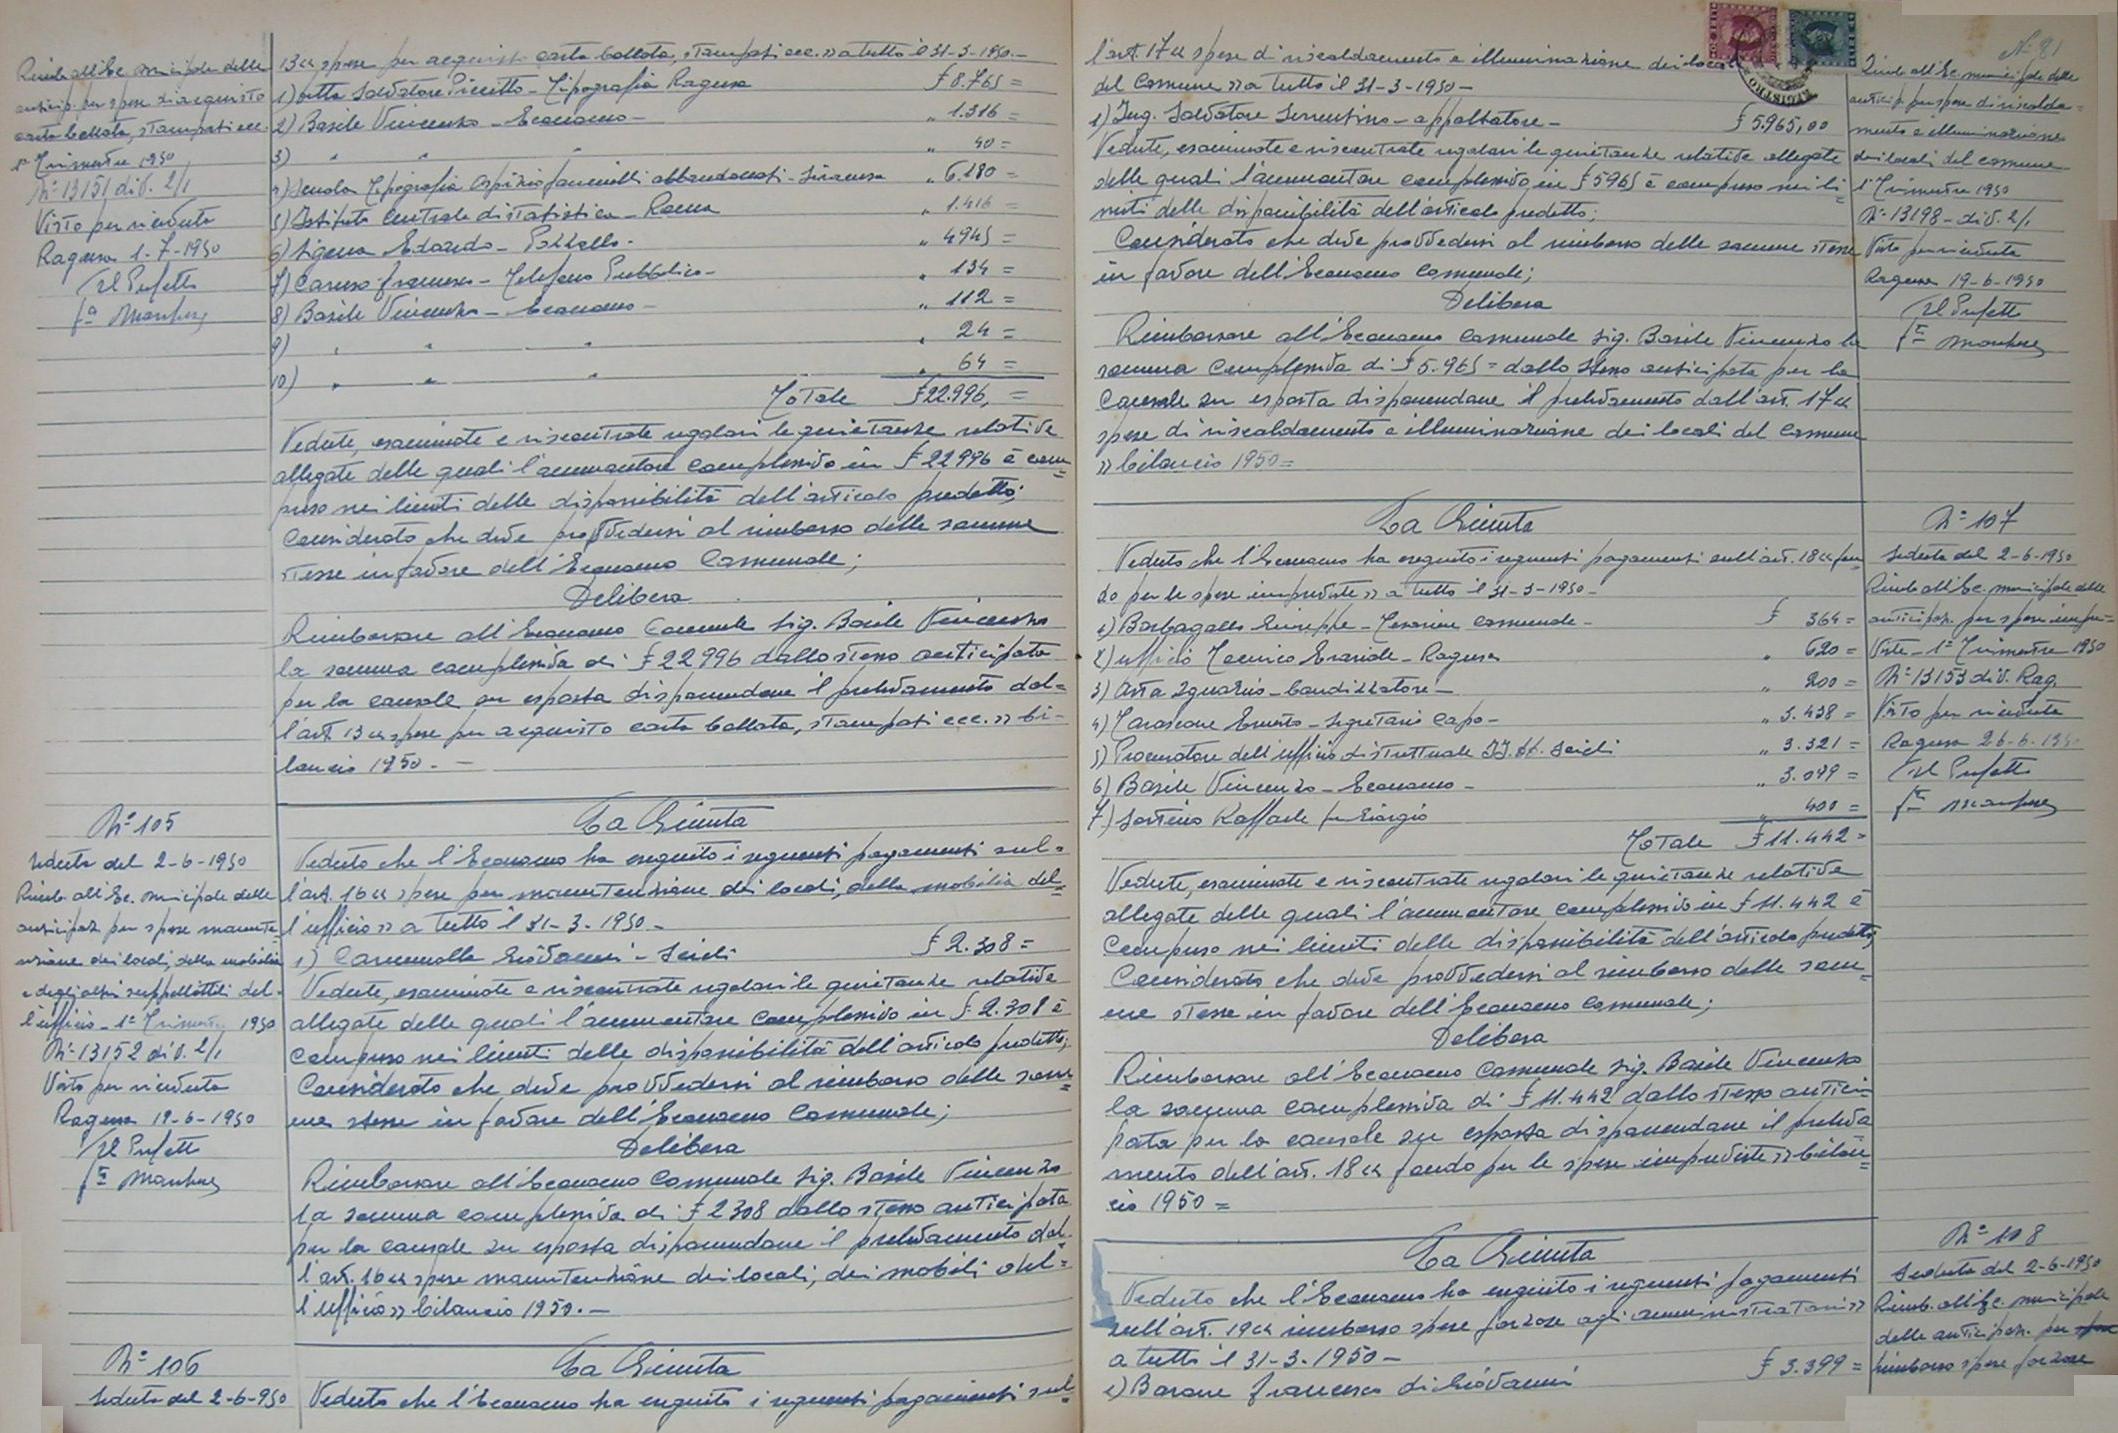 Rimb. all'Ec. Municipale delle
anticip. per spese di acquisto
carta bollata, stampati ecc.
1º Trimestre 1950
Nº 13151 div. 2/1
Visto per ricevuta
Ragusa 1-7-1950
Il Prefetto
13 « spese per acquisto carta bollata, stampati ecc. » a tutto il 31-3-1950.-
1) Ditta Salvatore Piccitto - Tipografia Ragusa £ 8.765 =
2) Basile Vincenzo - Economo - „ 1.316 =
3) „ „ „ „ 40 =
4) Scuola Tipografia Ospizio fanciulli abbandonati - Siracusa „ 6.180 =
5) Istituto Centrale di Statistica - Roma „ 1.416 =
6) Sigona Edoardo - Pozzallo - „ 4945 =
7) Caruso Francesco - Telefono Pubblico - „ 134 =
8) Basile Vincenzo - Economo - „ 112 =
9) „ „ „ „ 24 =
10) „ „ „ „ 64 =
Totale £ 22.996, =
Vedute, esaminate e riscontrate regolari le quietanze relative
allegate delle quali l'ammontare complessivo in £ 22996 è com=
preso nei limiti delle disponibilità dell'articolo predetto;
Considerato che deve provvedersi al rimborso delle somme
stesse in favore dell'Economo Comunale;
Delibera
Rimborsare all'Economo Comunale Sig. Basile Vincenzo
la somma complessiva di £ 22996 dallo stesso anticipata
per la causale su esposta disponendone il prelevamento dal=
l'art. 13 « spese per acquisto carta bollata, stampati ecc. » bi-
lancio 1950. -
Nº 105
Seduta del 2-6-1950
Rimb. all'Ec. Municipale delle
anticipaz. per spese manute=
nzione dei locali, della mobilia
e degli altri suppellettili del-
l'ufficio - 1º Trimestre 1950
Nº 13152 div. 2/1
Visto per ricevuta
Ragusa 19-6-1950
Il Prefetto
La Giunta
Veduto che l'Economo ha eseguito i seguenti pagamenti sul=
l'art. 16 « spese per manutenzione dei locali, della mobilia del=
l'ufficio » a tutto il 31-3-1950 -
1) Carnemolla Giovanni - Scicli £ 2.308 =
Vedute, esaminate e riscontrate regolari le quietanze relative
allegate delle quali l'ammontare complessivo in £ 2.308 è
compreso nei limiti delle disponibilità dell'articolo predetto;
Considerato che deve provvedersi al rimborso delle som=
me stesse in favore dell'Economo Comunale;
Delibera
Rimborsare all'Economo Comunale Sig. Basile Vincenzo
la somma complessiva di £ 2308 dallo stesso anticipata
per la causale su esposta disponendone il prelevamento dal-
l'art. 16 « spese manutenzione dei locali, dei mobili del=
l'ufficio » bilancio 1950. -
Nº 106
Seduta del 2-6-950
La Giunta
Veduto che l'Economo ha eseguito i seguenti pagamenti sul=
l'art. 17 « spese di riscaldamento e illuminazione dei locali
del Comune » a tutto il 31-3-1950 -
1) Ing. Salvatore Sorrentino - appaltatore - £ 5.965,00
Vedute, esaminate e riscontrate regolari le quietanze relative allegate
delle quali l'ammontare complessivo in £ 5965 è compreso nei li=
miti delle disponibilità dell'articolo predetto;
Considerato che deve provvedersi al rimborso delle somme stesse
in favore dell'Economo Comunale;
Delibera
Rimborsare all'Economo Comunale Sig. Basile Vincenzo la
somma complessiva di £ 5.965 = dallo stesso anticipata per la
causale su esposta disponendone il prelevamento dall'art. 17 «
spese di riscaldamento e illuminazione dei locali del Comune
» bilancio 1950 =
Nº 81
REGISTRO
Rimb. all'Ec. municipale delle
anticip. per spese di riscalda=
mento e illuminazione
dei locali del comune
1º Trimestre 1950
Nº 13198 - div. 2/1
Visto per ricevuta
Ragusa 19-6-1950
Il Prefetto
La Giunta
Veduto che l'Economo ha eseguito i seguenti pagamenti sull'art. 18 « fon=
do per le spese impreviste » a tutto il 31-3-1950 -
1) Barbagallo Giuseppe - Tesoriere comunale - £ 364 =
2) Ufficio Tecnico Erariale - Ragusa „ 620 =
3) Arta Ignazio - banditore - „ 200 =
4) Tarascone Ernesto - Segretario Capo - „ 3.438 =
5) Procuratore dell'Ufficio distrettuale II.DD. Scicli „ 3.321 =
6) Basile Vincenzo - Economo - „ 3.099 =
7) Sortino Raffaele fu Giorgio „ 400 =
Totale £ 11.442 =
Vedute, esaminate e riscontrate regolari le quietanze relative
allegate delle quali l'ammontare complessivo in £ 11.442 è
compreso nei limiti delle disponibilità dell'articolo predetto;
Considerato che deve provvedersi al rimborso delle som=
me stesse in favore dell'Economo Comunale;
Delibera
Rimborsare all'Economo Comunale Sig. Basile Vincenzo
la somma complessiva di £ 11.442 dallo stesso antici=
pata per la causale su esposta disponendone il preleva
mento dell'art. 18 « fondo per le spese impreviste » bilan=
cio 1950 =
Nº 107
Seduta del 2-6-1950
Rimb. all'Ec. municipale delle
anticipaz. per spese impre=
viste - 1º Trimestre 1950
Nº 13153 div. Rag.
Visto per ricevuta
Ragusa 26-6-1950
Il Prefetto
La Giunta
Veduto che l'Economo ha eseguito i seguenti pagamenti
sull'art. 19 « rimborso spese forzose agli amministratori »
a tutto il 31-3-1950 -
1) Barone Francesco di Giovanni £ 3.399 =
Nº 108
Seduta del 2-6-1950
Rimb. all'Ec. municipale
delle anticipaz. per spese
rimborso spese forzose